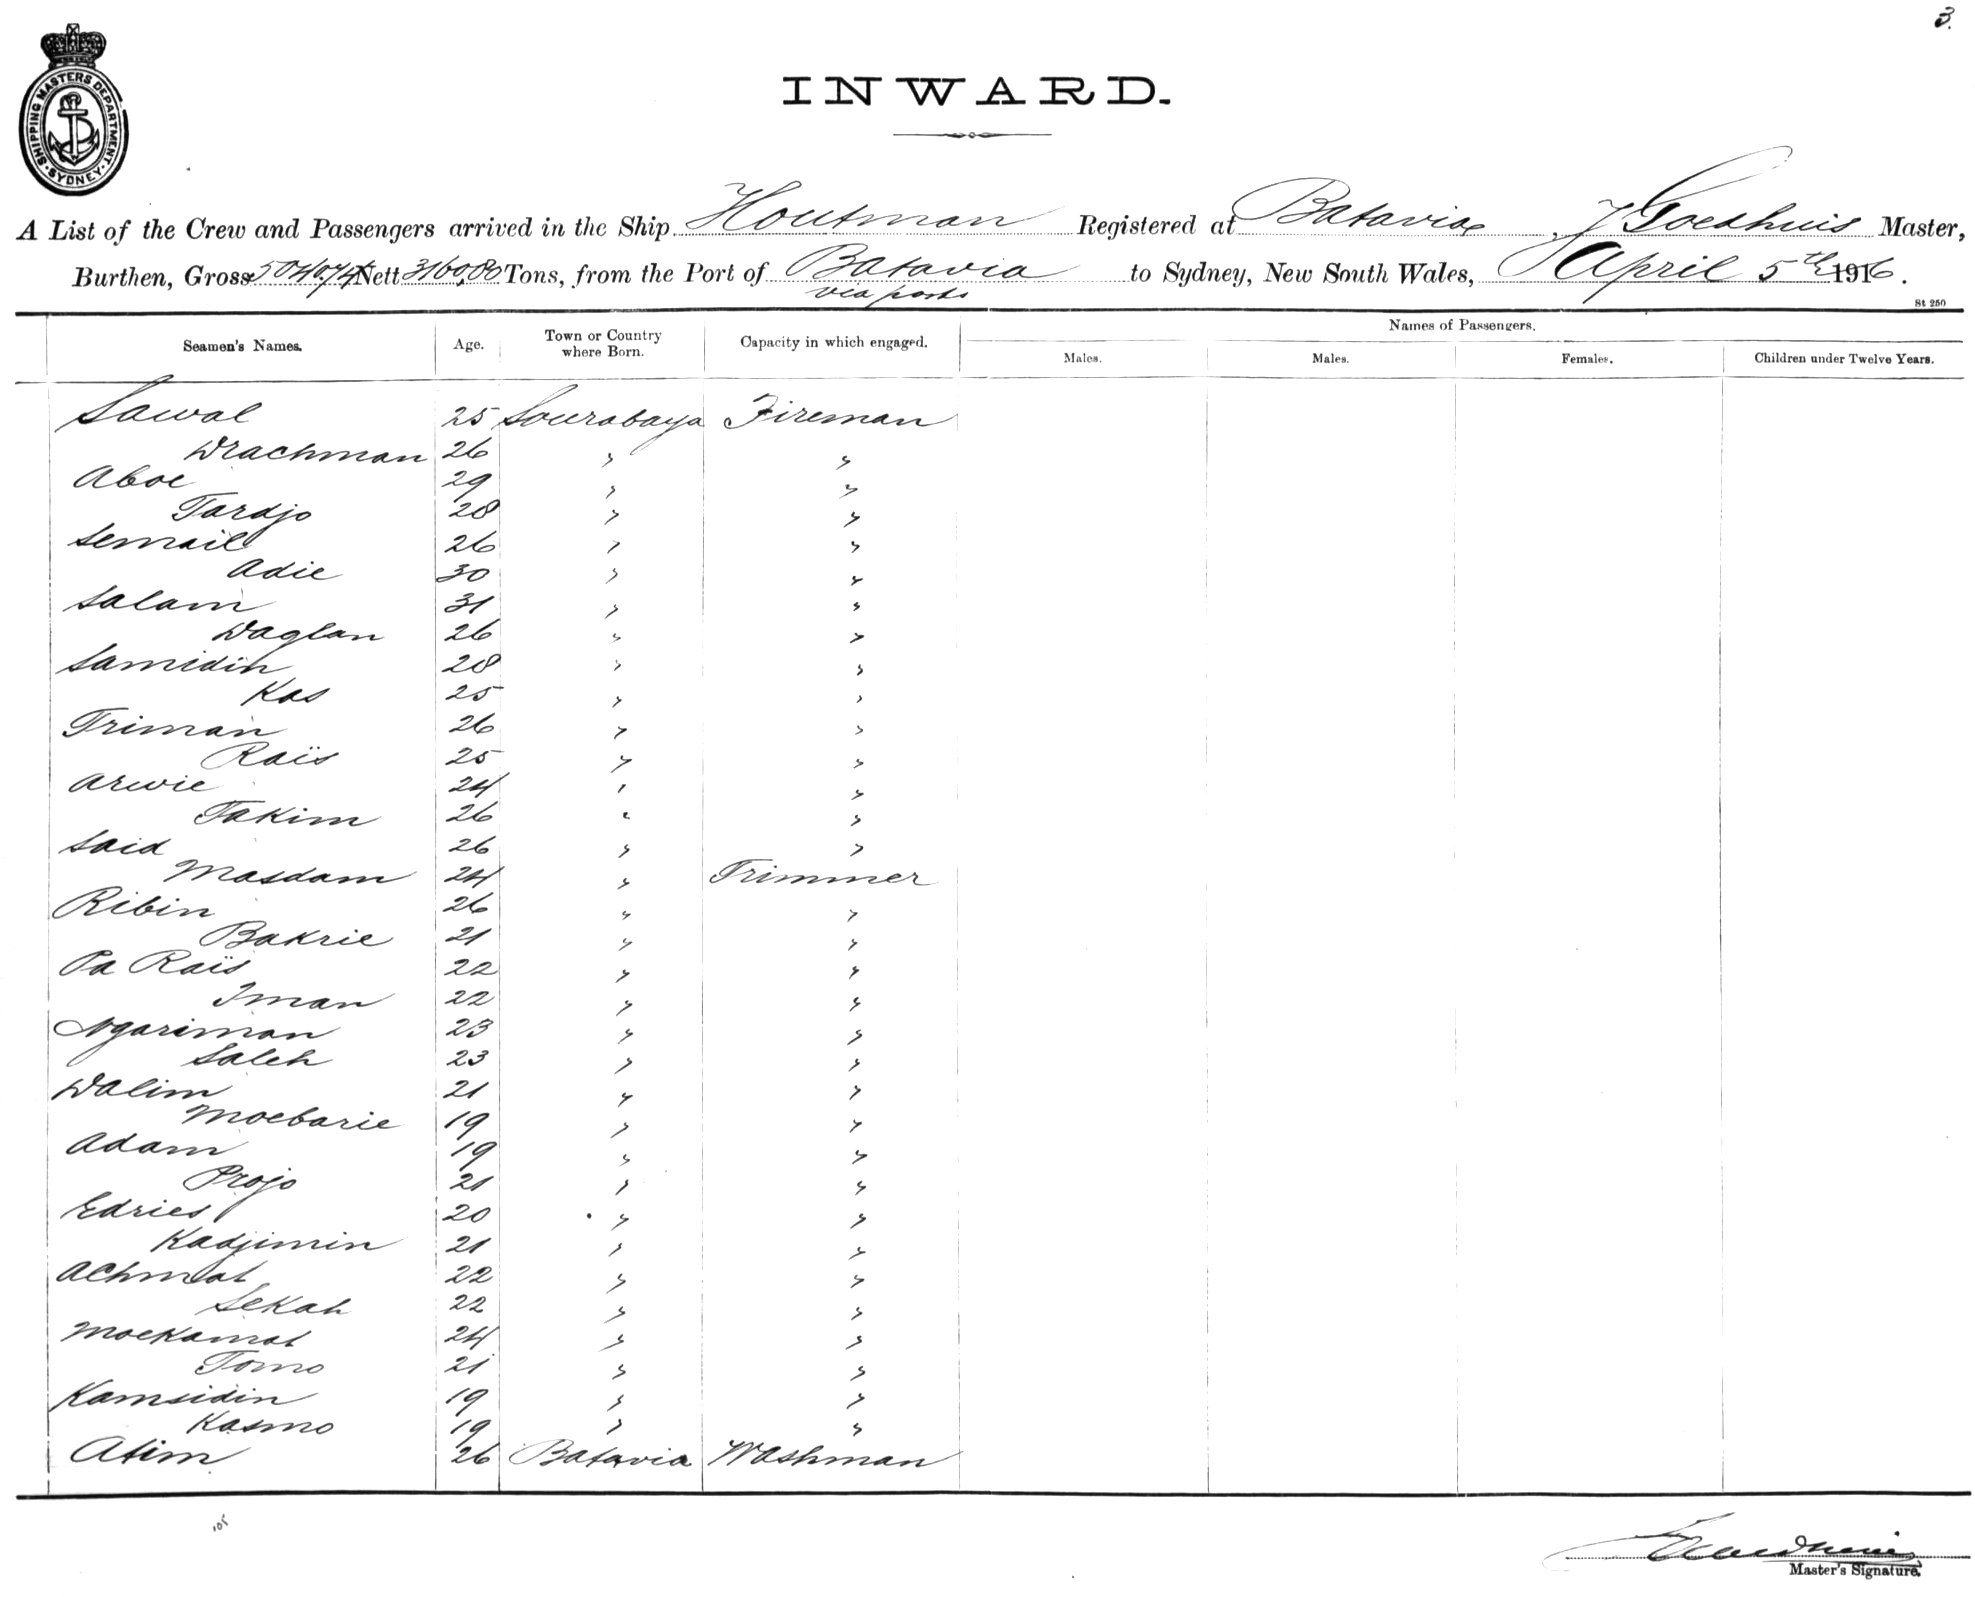 3.
SHIPPING MASTERS DEPARTMENT
SYDNEY
INWARD.
A List of the Crew and Passengers arrived in the Ship Houtman Registered at Batavia, J Goedhuis Master,
Burthen, Gross 5040.74 Nett 3160.80 Tons, from the Port of Batavia to Sydney, New South Wales, April 5th 1916.
via ports
St 250
Names of Passengers.
Seamen's Names. Age. Town or Country where Born. Capacity in which engaged. Males. Males. Females. Children under Twelve Years.
Sawal 25 Sourabaya Fireman
Drachman 26 " "
Aboe 29 " "
Tardjo 28 " "
Semail 26 " "
Adie 30 " "
Salam 31 " "
Waglan 26 " "
Samidin 28 " "
Kas 25 " "
Triman 26 " "
Raïs 25 " "
Arwie 24 " "
Takim 26 " "
Said 26 " "
Masdam 24 " Trimmer
Ribin 26 " "
Bakrie 21 " "
Pa Raïs 22 " "
Iman 22 " "
Ngariman 23 " "
Saleh 23 " "
Walim 21 " "
Moebarie 19 " "
Adam 19 " "
Projo 21 " "
Edries 20 " "
Kadjimin 21 " "
Achmat 22 " "
Sekah 22 " "
Moekamat 24 " "
Tomo 21 " "
Kamsidin 19 " "
Kasmo 19 " "
Atim 26 Batavia Washman
105
Master's Signature.